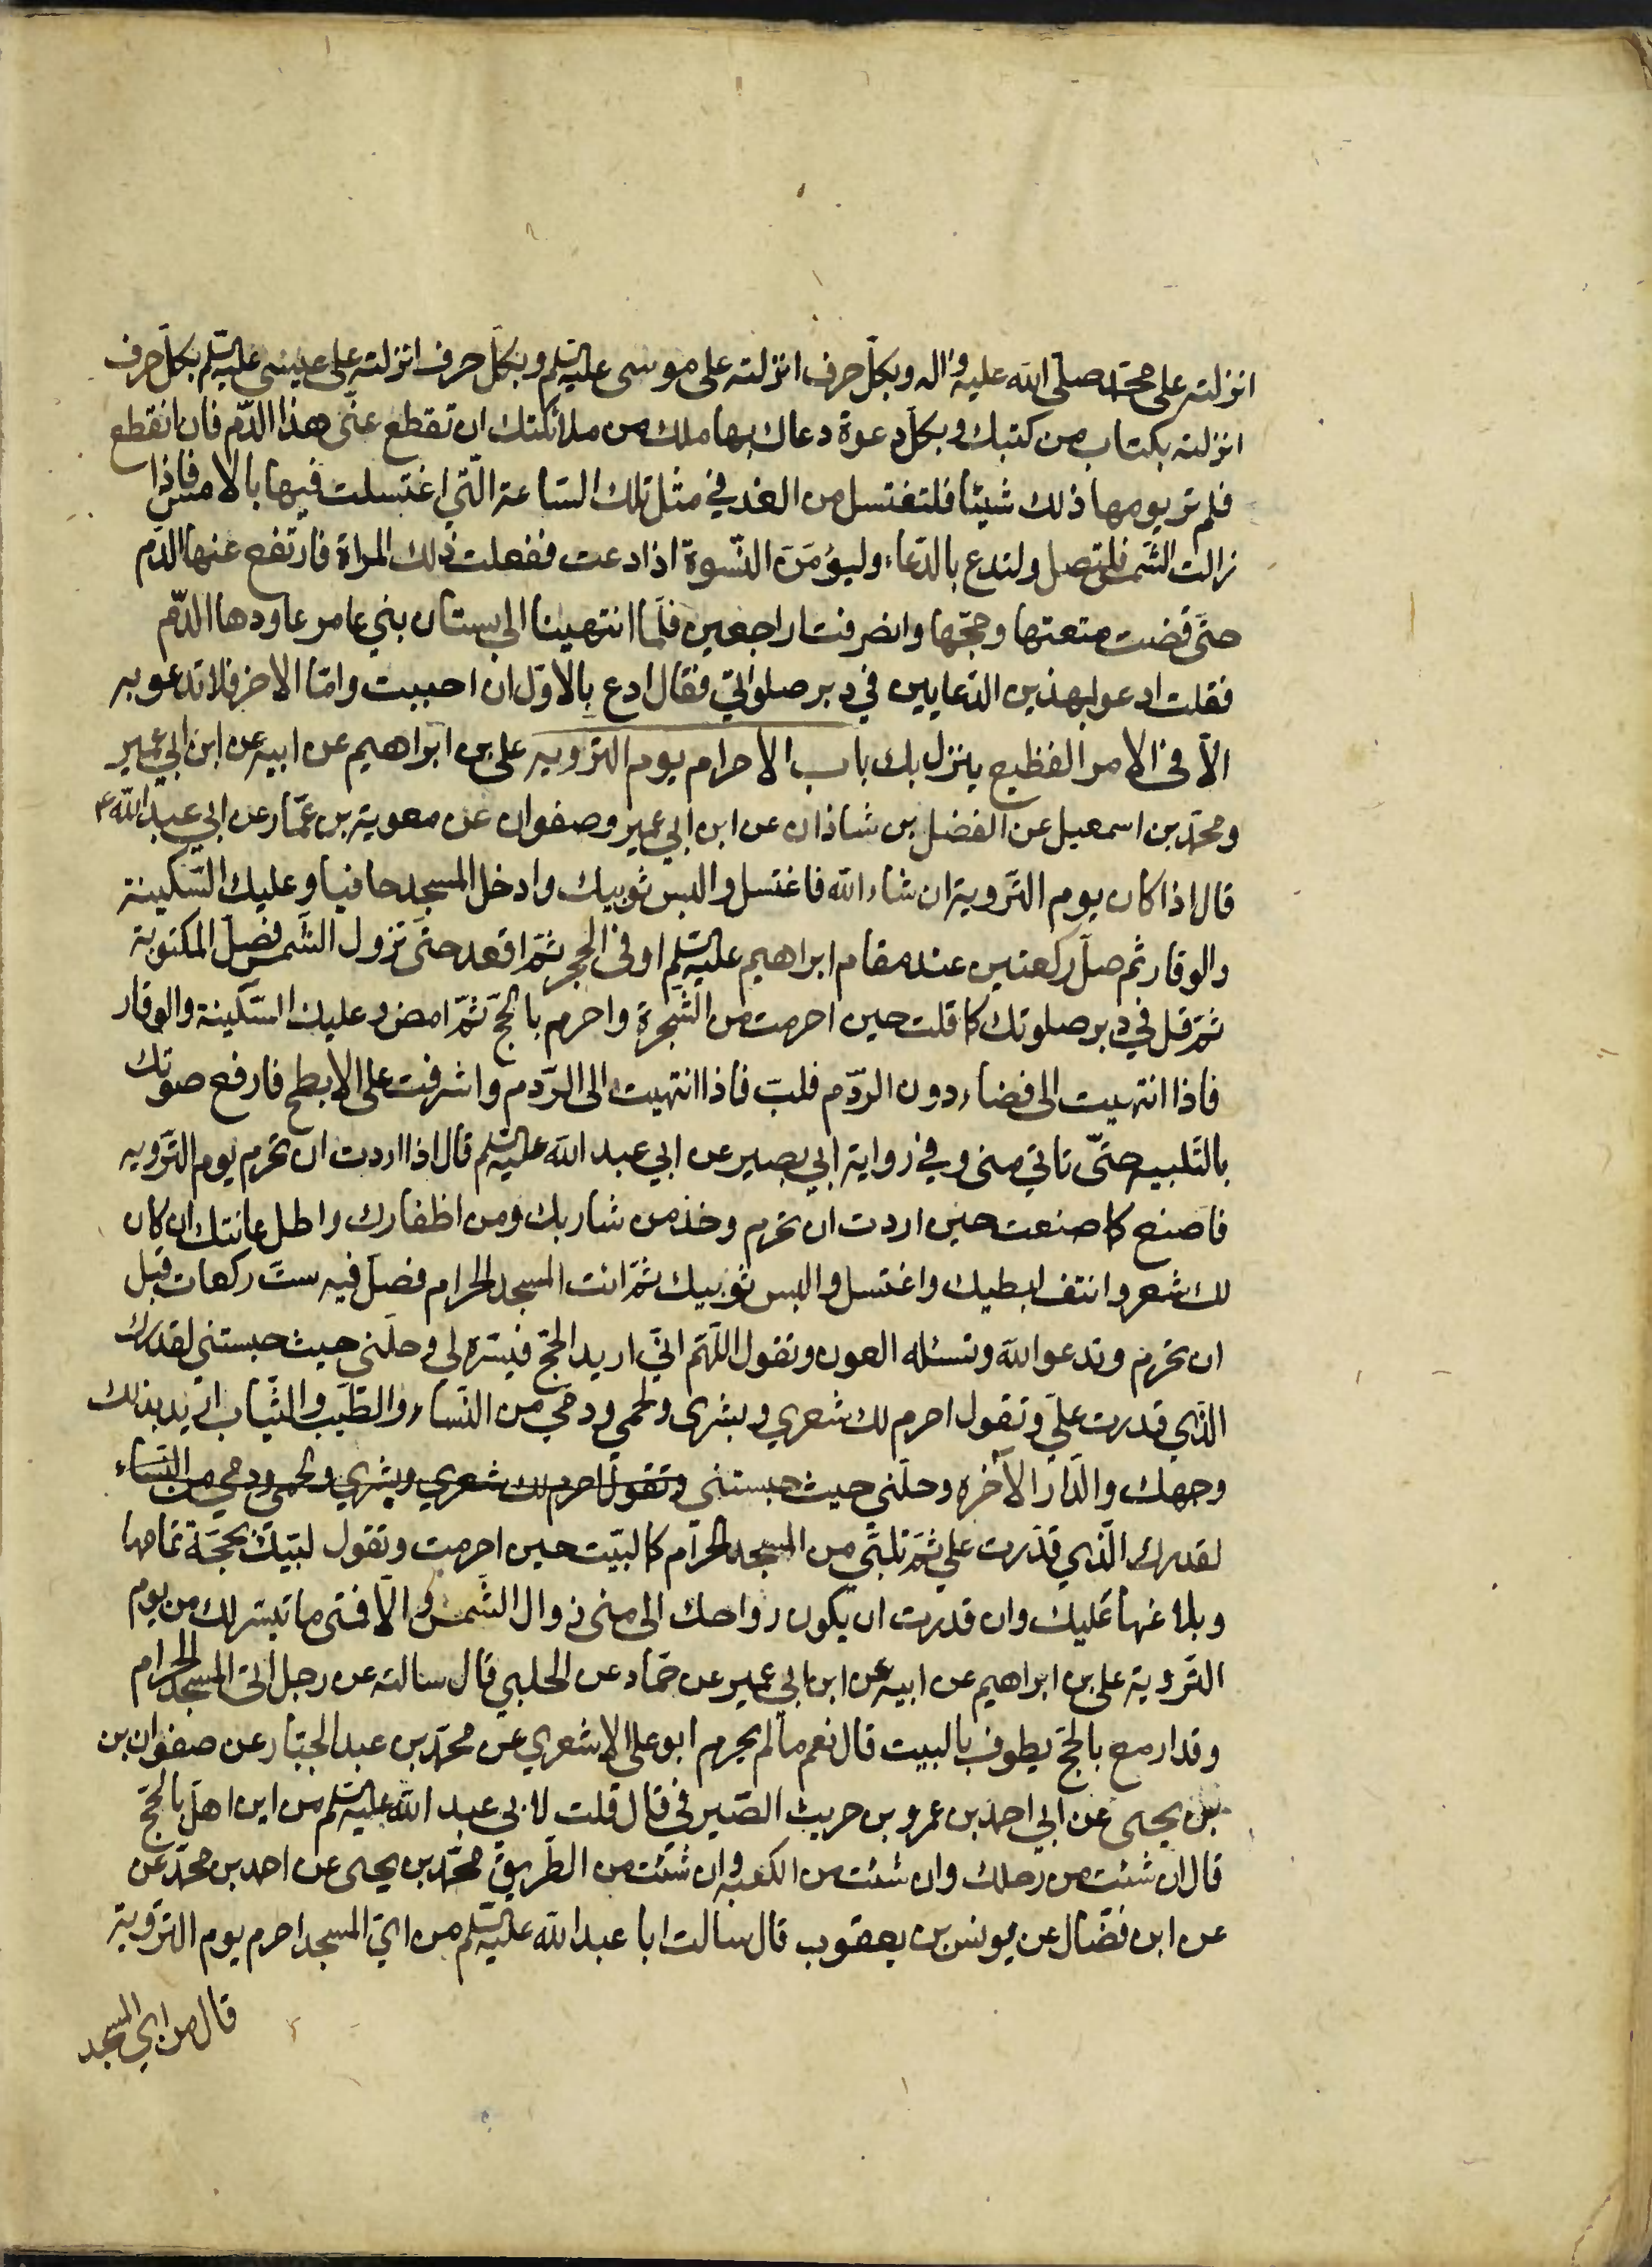 انزلته على محمّد صلّى الله عليه واله وبكلّ حرف انزلته على موسى عليه السلم وبكلّ حرف انزلته على عيسى عليه السلم بكلّ حرف
انزلته بكتاب من كتبك وبكلّ دعوة دعاك بها ملك من ملائكتك ان تقطع عنّى هذا الدّم فان انقطع
فلم تر يومها ذلك شيئا فلتغتسل من الغد في مثل تلك السّاعة الّتي اغتسلت فيها بالامس فاذا
زالت الشّمس فلتصل ولتدع بالدّعاء وليؤمّنَ النّسوة اذا دعت ففعلت ذلك المراة فارتفع عنها الدّم
حتّى قضت متعتها وحجّها وانصرفنا راجعين فلمّا انتهينا الى بستان بني عامر عاودها الدّم
فقلت ادعو لهذين الدّعايين في دبر صلواتي فقال ادع بالاوّل ان احببت وامّا الاخر فلا تدعو به
الّا في الامر الفظيع ينزل بك باب الاحرام يوم التروية علي بن ابراهيم عن ابيه عن ابن ابي عمير
ومحمّد بن اسمعيل عن الفضل بن شاذان عن ابن ابي عمير وصفوان عن معوية بن عمّار عن ابي عبد الله ع
قال اذا كان يوم التّروية ان شاء الله فاغتسل والبس ثوبيك وادخل المسجد حافيا وعليك السّكينة
والوقار ثم صلّ ركعتين عند مقام ابراهيم عليه السلم او في الحجر ثمّ اقعد حتّى تزول الشّمس فصلّ المكتوبة
ثمّ قل في دبر صلوتك كما قلت حين احرمت من الشّجرة واحرم بالحجّ ثمّ امض وعليك السّكينة والوقار
فاذا انتهيت الى فضاء دون الردّم فلبّ فاذا انتهيت الى الرّدم واشرفت على الابطح فارفع صوتك
بالتّلبيه حتّى تاتي منى وفي رواية ابي بصير عن ابي عبد الله عليه السلم قال اذا اردت ان تحرم يوم التّرويه
فاصنع كما صنعت حين اردت ان تحرم وخذ من شاربك ومن اظفارك واطل عانتك ان كان
لك شعر وانتف ابطيك واغتسل والبس ثوبيك ثمّ ائت المسجد الحرام فصلّ فيه ستّ ركعات قبل
ان تحرم وتدعو الله وتسئله العون وتقول اللّهمّ انّي اريد الحجّ فيسّره لي وحلّني حيث حبستني لقدرك
الّذي قدرت عليّ وتقول احرم لك شعري وبشرى ولحمى ودمي من النّساء والطّيب والثّياب اريد بذلك
وجهك والدّار الآخره وحلّني حيث حبستني وتقول احرم لك شعري وبشري ولحمى ودمي من النّساء
لقدرك الّذي قدّرت علي ثمّ تلبّي من المسجد الحرام كما لبّيت حين احرمت وتقول لبّيك بحجّة تمامها
وبلاغها عليك وان قدرت ان يكون رواحك الى منى زوال الشّمس والّا فمتى ما تيسّر لك من يوم
التّروية علي بن ابراهيم عن ابيه عن ابن ابي عمير عن حمّاد عن الحلبي قال سالته عن رجل اتى المسجد الحرام
وقد ازمع بالحجّ يطوف بالبيت قال نعم ما لم يحرم ابو علي الاشعري عن محمّد بن عبد الجبّار عن صفوان بن
بن يحيى عن ابي احمد بن عمرو بن حريث الصّيرفي قال قلت لابي عبد الله عليه السلم من اين اهلّ بالحجّ
قال ان شئت من رحلك وان شئت من الكعبه وان شئت من الطّريق محمّد بن يحيى عن احمد بن محمّد عن
عن ابن فضّال عن يونس بن يعقوب قال سالت ابا عبد الله عليه السلم من ايّ المسجد احرم يوم التّروية
قال من اي المسجد